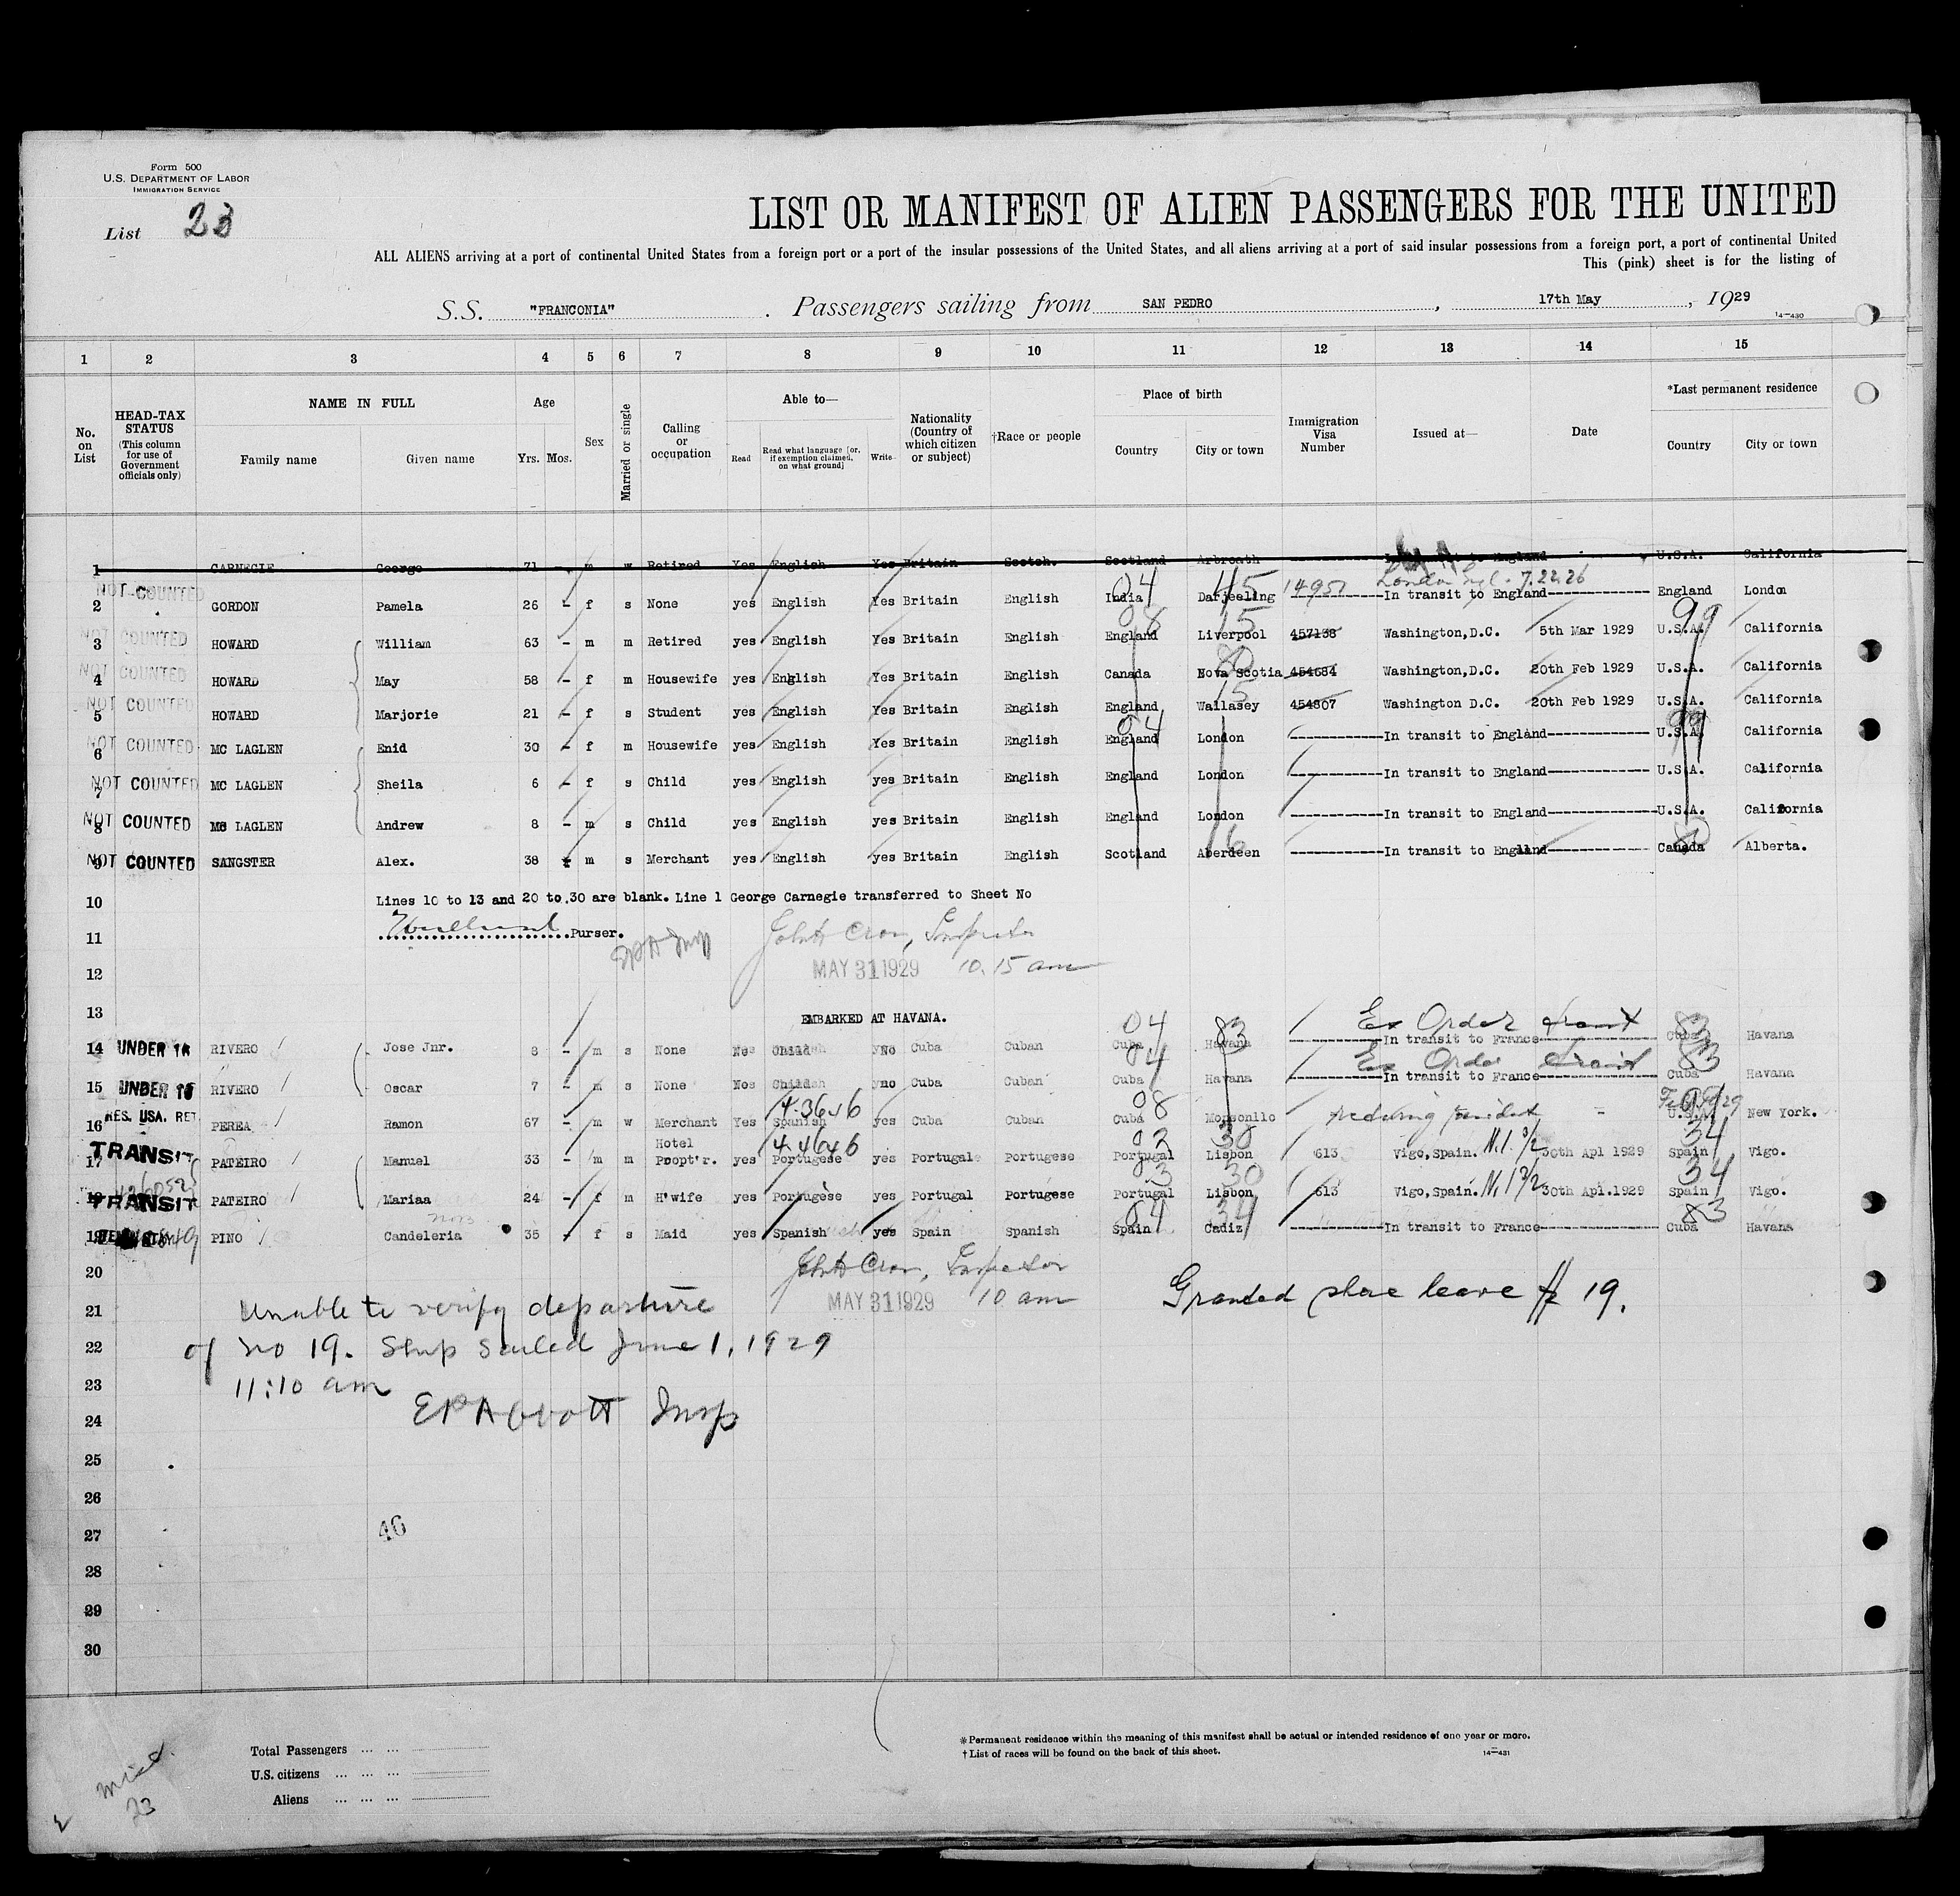 Form 500
U.S. DEPARTMENT OF LABOR
IMMIGRATION SERVICE
List 23
LIST OR MANIFEST OF ALIEN PASSENGERS FOR THE UNITED
ALL ALIENS arriving at a port of continental United States from a foreign port or a port of the insular possessions of the United States, and all aliens arriving at a port of said insular possessions from a foreign port, a port of continental United
This (pink) sheet is for the listing of
S.S. "FRANCONIA" . Passengers sailing from SAN PEDRO , 17th May , 1929
14—430
1 2 3 4 5 6 7 8 9 10 11 12 13 14 15
No. on List
HEAD-TAX STATUS (This column for use of Government officials only)
NAME IN FULL
Family name Given name
Age
Yrs. Mos.
Sex
Married or single
Calling or occupation
Able to—
Read
Read what language [or, if exemption claimed, on what ground]
Write
Nationality (Country of which citizen or subject)
†Race or people
Place of birth
Country City or town
Immigration Visa Number
Issued at—
Date
*Last permanent residence
Country City or town
1 CARNEGIE George 71 - m w Retired Yes English Yes Britain Scotch. Scotland Arbroath U.S.A. California
04 15 14957 London 7.22.26
2 NOT COUNTED GORDON Pamela 26 - f s None yes English Yes Britain English India Darjeeling In transit to England England London
08 15 99
3 NOT COUNTED HOWARD William 63 - m m Retired yes English Yes Britain English England Liverpool 457138 Washington,D.C. 5th Mar 1929 U.S.A. California
80
4 NOT COUNTED HOWARD May 58 - f m Housewife yes English Yes Britain English Canada Nova Scotia 454684 Washington,D.C. 20th Feb 1929 U.S.A. California
15
5 NOT COUNTED HOWARD Marjorie 21 - f s Student yes English Yes Britain English England Wallasey 454807 Washington D.C. 20th Feb 1929 U.S.A. California
04 99
6 NOT COUNTED MC LAGLEN Enid 30 - f m Housewife yes English Yes Britain English England London In transit to England U.S.A. California
7 NOT COUNTED MC LAGLEN Sheila 6 - f s Child yes English yes Britain English England London In transit to England U.S.A. California
8 NOT COUNTED MC LAGLEN Andrew 8 - m s Child yes English yes Britain English England London In transit to England U.S.A. California
16 80
9 NOT COUNTED SANGSTER Alex. 38 - m s Merchant yes English yes Britain English Scotland Aberdeen In transit to England Canada Alberta.
10 Lines 10 to 13 and 20 to 30 are blank. Line 1 George Carnegie transferred to Sheet No
11 Purser. John Cron, Inspector
12 MAY 31 1929 10.15 am
13 EMBARKED AT HAVANA.
04 83 Ex Order 83
14 UNDER 16 RIVERO Jose Jnr. 8 - m s None No Child No Cuba Cuban Cuba Havana In transit to France Cuba Havana
04 Ex Order 83
15 UNDER 16 RIVERO Oscar 7 - m s None No Child no Cuba Cuban Cuba Havana In transit to France Cuba Havana
4-3646 08
16 RES. USA. RET. PEREA Ramon 67 - m w Merchant Yes Spanish yes Cuba Cuban Cuba U.S.A. New York.
4-4646 30 34
17 TRANSIT PATEIRO Manuel 33 - m m Hotel Propt'r. yes Portugese yes Portugal Portugese Portugal Lisbon 613 Vigo,Spain. 30th Apl 1929 Spain Vigo.
30 34
18 TRANSIT PATEIRO Mariaa 24 - f m H'wife yes Portugese yes Portugal Portugese Portugal Lisbon 613 Vigo,Spain. 30th Apl.1929 Spain Vigo.
04 34 83
19 PINO Candeleria 35 - f s Maid yes Spanish yes Spain Spanish Spain Cadiz In transit to France Cuba Havana
20 John Cron, Inspector
21 Unable to verify departure MAY 31 1929 10 am Granted shore leave # 19.
22 of No 19. Ship sailed June 1, 1929
23 11:10 am
24 EP Abbott Insp
25
26
27 46
28
29
30
Total Passengers ... ...
U.S. citizens ... ... ...
Aliens ... ... ...
* Permanent residence within the meaning of this manifest shall be actual or intended residence of one year or more.
† List of races will be found on the back of this sheet.
14—431
23